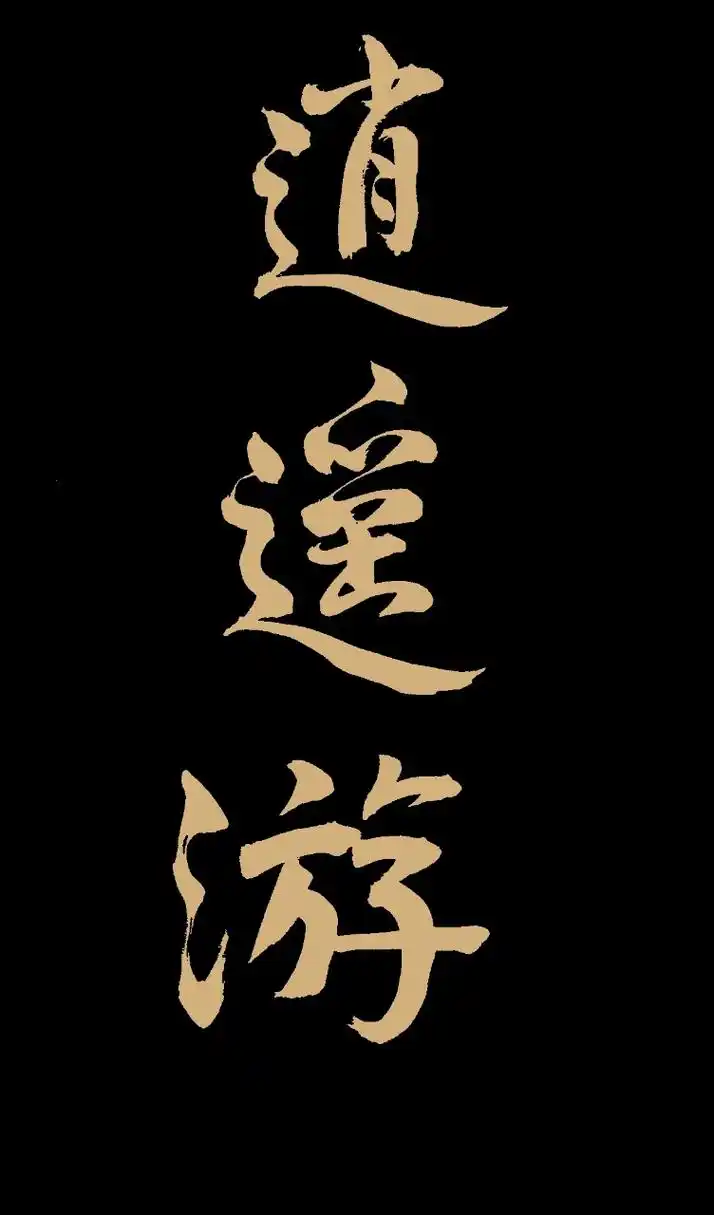 逍遥游